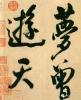 夢曾
遊天